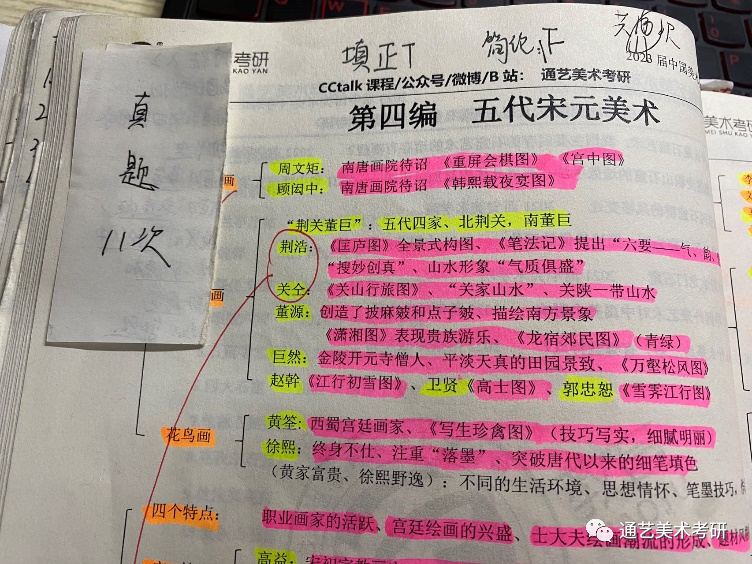 考研
KAO YAN
填正T
2023届中国美术
CCtalk 课程/公众号/微博/B 站： 通艺美术考研
第四编 五代宋元美术
美术考研
MEI SHU KAO YAN
真题
11次
画
周文矩：南唐画院待诏《重屏会棋图》《宫中图》
顾闳中：南唐画院待诏《韩熙载夜宴图》
画
“荆关董巨”：五代四家、北荆关，南董巨
荆浩：《匡庐图》全景式构图、《笔法记》提出“六要——气、韵、
“搜妙创真”、山水形象“气质俱盛”
关仝：《关山行旅图》、“关家山水”、关陕一带山水
董源：创造了披麻皴和点子皴、描绘南方景象
《潇湘图》表现贵族游乐、《龙宿郊民图》（青绿）
巨然：金陵开元寺僧人、平淡天真的田园景致、《万壑松风图》
赵幹《江行初雪图》、卫贤《高士图》、郭忠恕《雪霁江行图》
花鸟画
黄筌：西蜀宫廷画家、《写生珍禽图》（技巧写实，细腻明丽）
徐熙：终身不仕、注重“落墨”、突破唐代以来的细笔填色
（黄家富贵、徐熙野逸）：不同的生活环境、思想情怀、笔墨技巧，
四个特点：
职业画家的活跃、宫廷绘画的兴盛、士大夫绘画潮流的形成、题材风
高益：
通艺美术考研